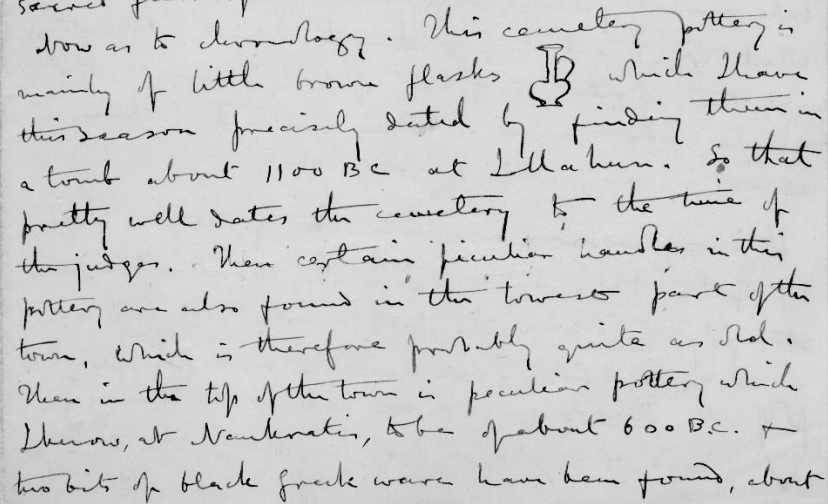 sacred
Now as to chronology. This cemetery pottery is
mainly of little brown flasks which I have
this season precisely dated by finding them in
a tomb about 1100 BC at Illahun. So that
pretty well dates the cemetery to the time of
the judges. Then certain peculiar handles in this
pottery are also found in the lowest part of the
town, which is therefore probably quite as old.
Then in the top of the town is peculiar pottery which
I know, at Naukratis, to be of about 600 B.C. +
two bits of black Greek ware have been found, about